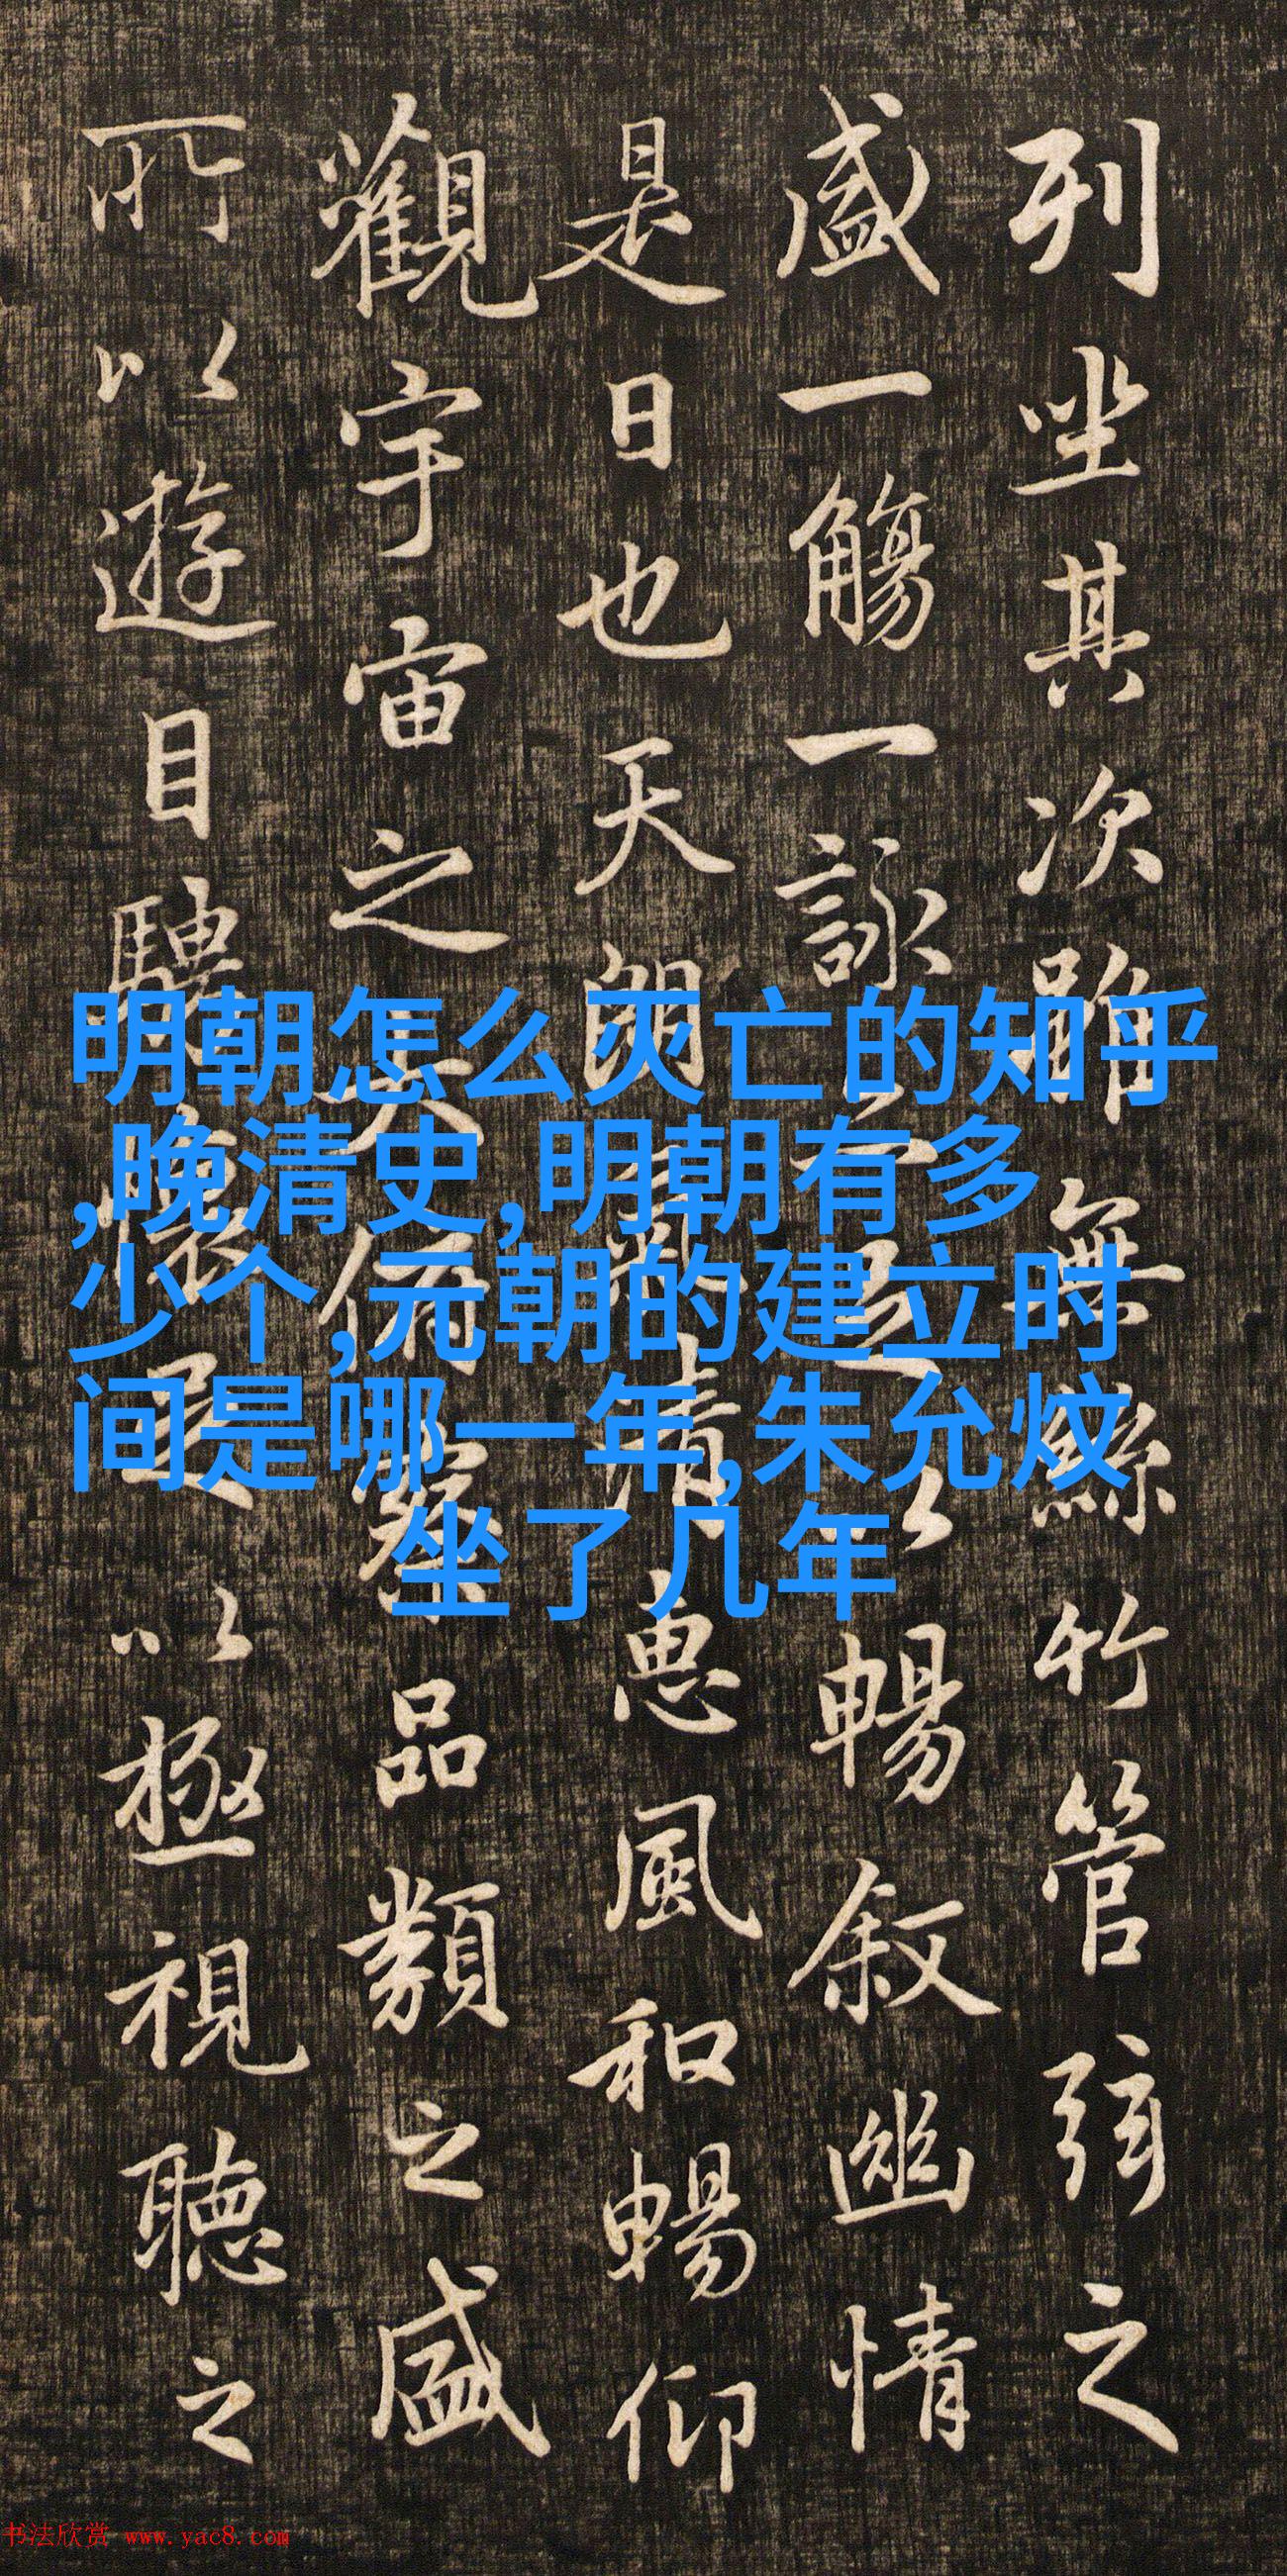 列坐其次雖無絲竹管弦之
盛一觴一詠亦足以暢叙幽情
是日也天朗氣清惠風和暢仰
觀宇宙之大俯察品類之盛
所以遊目騁懷足以極視聽之
明朝怎么灭亡的知乎
,晚清史,明朝有多
少个,元朝的建立时
间是哪一年,朱允炆
坐了几年
书法欣赏 www.yac8.com